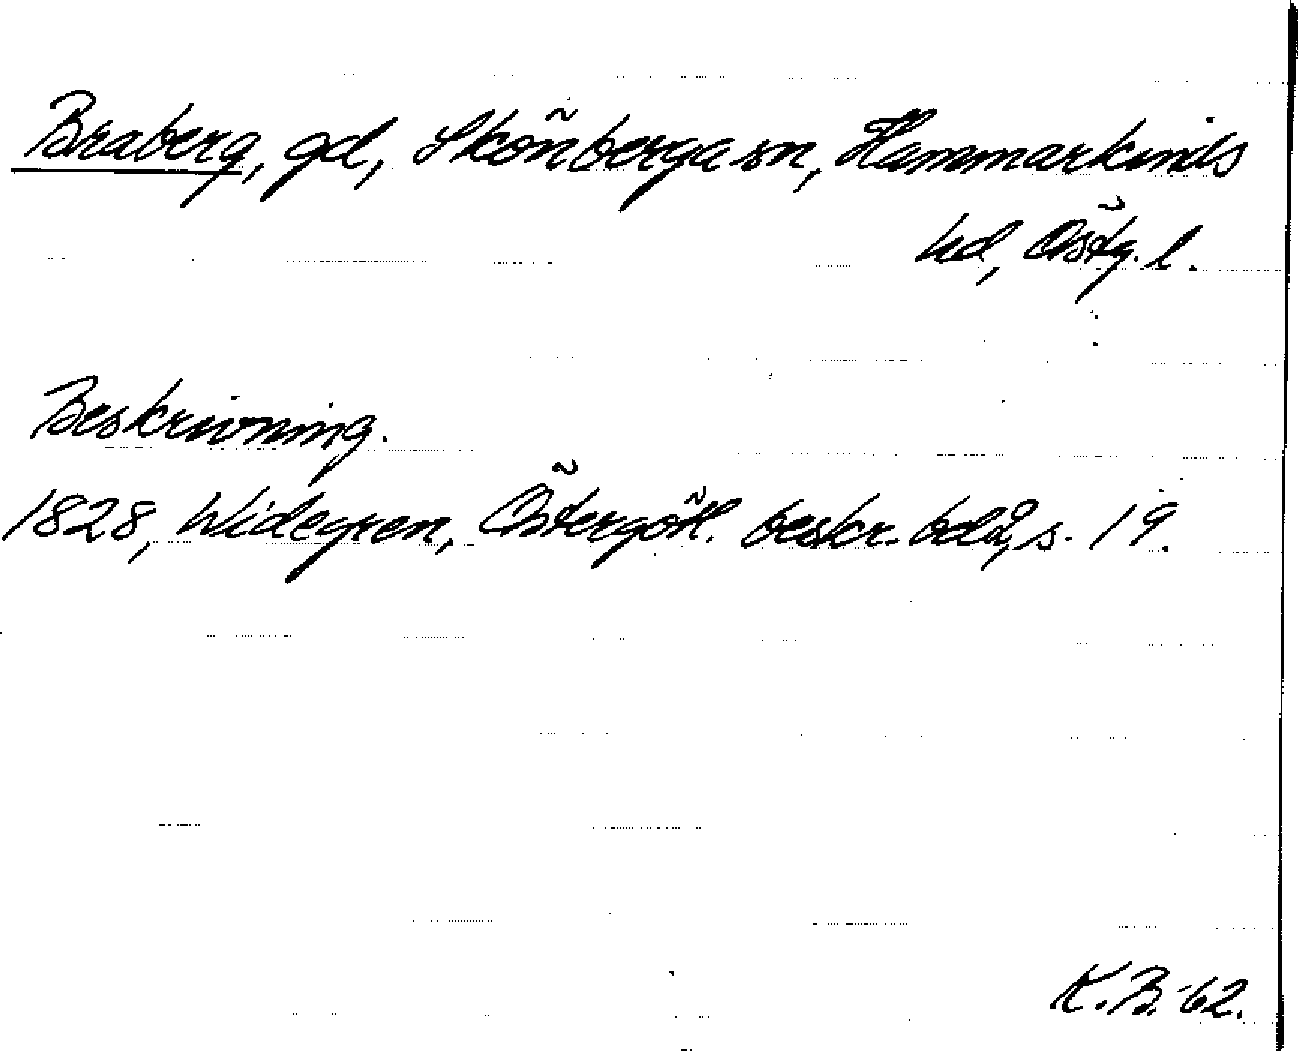 Braberg, gd, Skönberga sn, Hammarkinds
hd, Östg. l.
Beskrivning.
1828, Widegren, Östergötl. beskr. bd 2, s. 19.
K.B. -62.